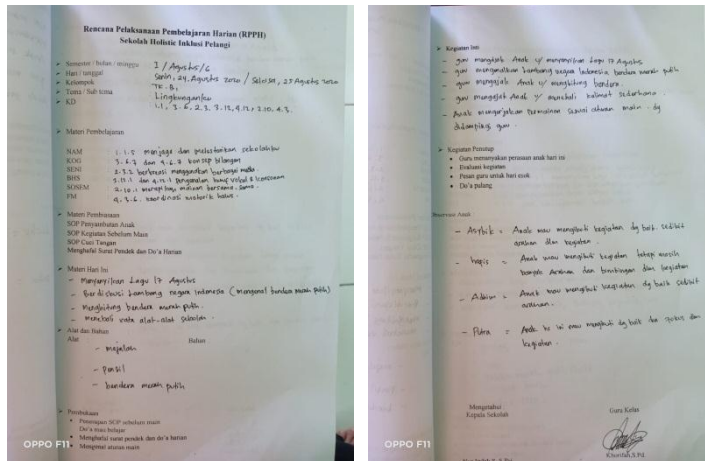 Rencana Pelaksanaan Pembelajaran Harian (RPPH)
Sekolah Holistic Inklusi Pelangi
Semester / bulan / minggu I / Agustus / 6
Hari / tanggal Senin, 24, Agustus 2020 / Selasa, 25 Agustus 2020
Kelompok TK. B,
Tema / Sub tema Lingkunganku
KD 1.1, 3.6, 2.3, 3.12, 4.12, 2.10, 4.3.
Materi Pembelajaran
NAM 1.1.5 menjaga dan melestarikan sekolahku
KOG 3.6.7 dan 4.6.7 konsep bilangan
SENI 2.3.2 berkreasi menggunakan berbagai media.
BHS 3.12.1 dan 4.12.1 pengenalan huruf vokal & konsonan
SOSEM 2.10.1 merapikan mainan bersama-sama.
FM 4.3.6. koordinasi motorik halus.
Materi Pembiasaan
SOP Penyambutan Anak
SOP Kegiatan Sebelum Main
SOP Cuci Tangan
Menghafal Surat Pendek dan Do'a Harian
Materi Hari Ini
- Menyanyikan Lagu 17 Agustus
- Berdiskusi Lambang negara Indonesia (mengenal bendera merah putih)
- Menghitung bendera merah putih.
- menebali kata alat-alat sekolah.
Alat dan Bahan
Alat Bahan
- majalah
- Pensil
- bendera merah putih
Pembukaan
Penerapan SOP sebelum main
Do'a mau belajar
Menghafal surat pendek dan do'a harian
Mengenal aturan main
OPPO F11
Kegiatan Inti
- guru mengajak Anak u/ menyanyikan Lagu 17 Agustus
- guru mengenalkan lambang negara Indonesia bendera merah putih
- guru mengajak Anak u/ menghitung bendera.
- guru mengajak Anak u/ menebali kalimat sederhana.
- Anak mengerjakan permainan sesuai aturan main dg
didampingi guru.
Kegiatan Penutup
Guru menanyakan perasaan anak hari ini
Evaluasi kegiatan
Pesan guru untuk hari esok
Do'a pulang
Anak
- = Anak mau mengikuti kegiatan dg baik sedikit
arahan dlm kegiatan.
- = Anak mau mengikuti kegiatan tetapi masih
banyak Arahan dan bimbingan dlm kegiatan
- = Anak mau mengikuti kegiatan dg baik sedikit
arahan.
- Putra = Anak hr ini mau mengikuti dg baik dan fokus dlm
kegiatan.
Mengetahui
Kepala Sekolah Guru Kelas
OPPO F11